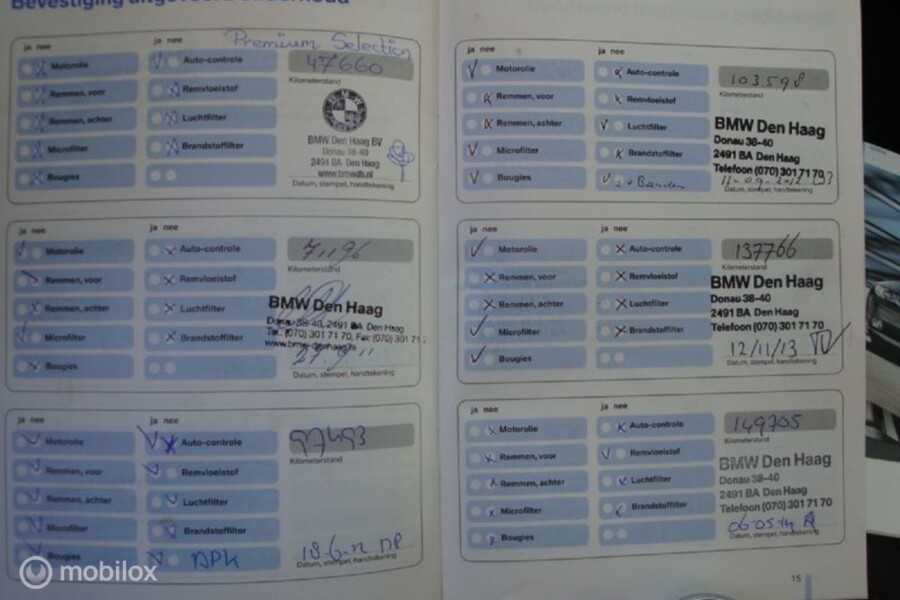 Bevestiging uitgevoerd onderhoud
ja nee
ja nee
Premium Selection
Motorolie
Auto-controle
47660
Kilometerstand
Remmen, voor
Remvloeistof
Remmen, achter
Luchtfilter
BMW Den Haag BV
Donau 38-40
2491 BA Den Haag
www.bmwdh.nl
Microfilter
Brandstoffilter
Bougies
Datum, stempel, handtekening
ja nee
ja nee
Motorolie
Auto-controle
71196
Kilometerstand
Remmen, voor
Remvloeistof
Remmen, achter
Luchtfilter
BMW Den Haag
Donau 38-40, 2491 BA Den Haag
Tel. (070) 301 71 70, Fax (070) 301 71
www.bmw-denhaag.nl
Microfilter
Brandstoffilter
Bougies
Datum, stempel, handtekening
ja nee
ja nee
Motorolie
Auto-controle
97493
Kilometerstand
Remmen, voor
Remvloeistof
Remmen, achter
Luchtfilter
Microfilter
Brandstoffilter
Bougies
APK
18-6-12
Datum, stempel, handtekening
ja nee
ja nee
Motorolie
Auto-controle
103598
Kilometerstand
Remmen, voor
Remvloeistof
Remmen, achter
Luchtfilter
BMW Den Haag
Donau 38-40
2491 BA Den Haag
Telefoon (070) 301 71 70
Microfilter
Brandstoffilter
Bougies
2x Banden
11-09-2012
Datum, stempel, handtekening
ja nee
ja nee
Motorolie
Auto-controle
137766
Kilometerstand
Remmen, voor
Remvloeistof
Remmen, achter
Luchtfilter
BMW Den Haag
Donau 38-40
2491 BA Den Haag
Telefoon (070) 301 71 70
Microfilter
Brandstoffilter
Bougies
12/11/13
Datum, stempel, handtekening
ja nee
ja nee
Motorolie
Auto-controle
149705
Kilometerstand
Remmen, voor
Remvloeistof
Remmen, achter
Luchtfilter
BMW Den Haag
Donau 38-40
2491 BA Den Haag
Telefoon (070) 301 71 70
Microfilter
Brandstoffilter
Bougies
06-05-14
Datum, stempel, handtekening
15
mobilox